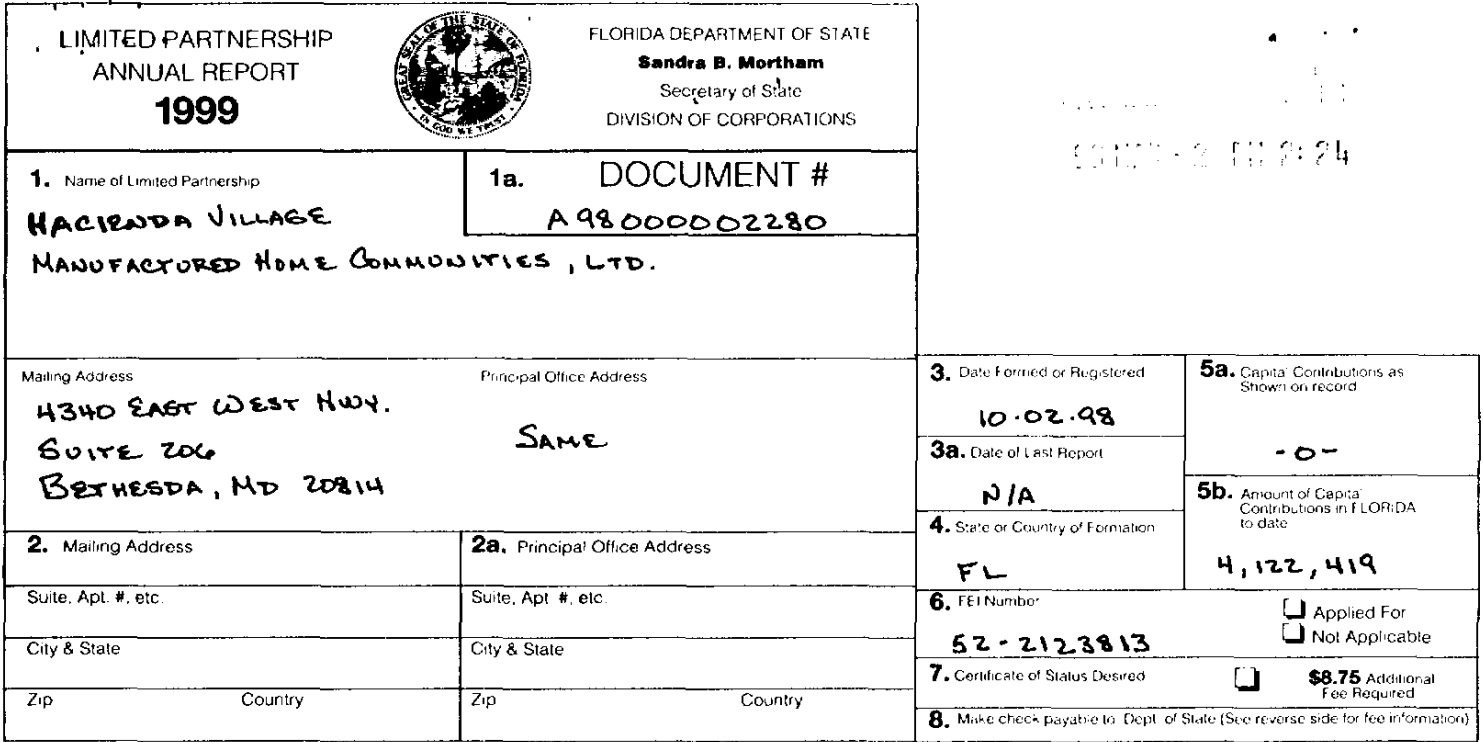 LIMITED PARTNERSHIP
ANNUAL REPORT
1999
GREAT SEAL OF THE STATE OF FLORIDA
IN GOD WE TRUST
FLORIDA DEPARTMENT OF STATE
Sandra B. Mortham
Secretary of State
DIVISION OF CORPORATIONS
1. Name of Limited Partnership
HACIENDA VILLAGE
MANUFACTURED HOME COMMUNITIES, LTD.
1a. DOCUMENT #
A98000002280
Mailing Address
4340 EAST WEST HWY.
SUITE 206
BETHESDA, MD 20814
Principal Office Address
SAME
2. Mailing Address
Suite, Apt. #, etc.
City & State
Zip Country
2a. Principal Office Address
Suite, Apt. #, etc.
City & State
Zip Country
3. Date Formed or Registered
10.02.98
3a. Date of Last Report
N/A
4. State or Country of Formation
FL
5a. Capital Contributions as
Shown on record
-0-
5b. Amount of Capital
Contributions in FLORIDA
to date
4,122,419
6. FEI Number
52-2123813
Applied For
Not Applicable
7. Certificate of Status Desired
$8.75 Additional
Fee Required
8. Make check payable to Dept. of State (See reverse side for fee information)